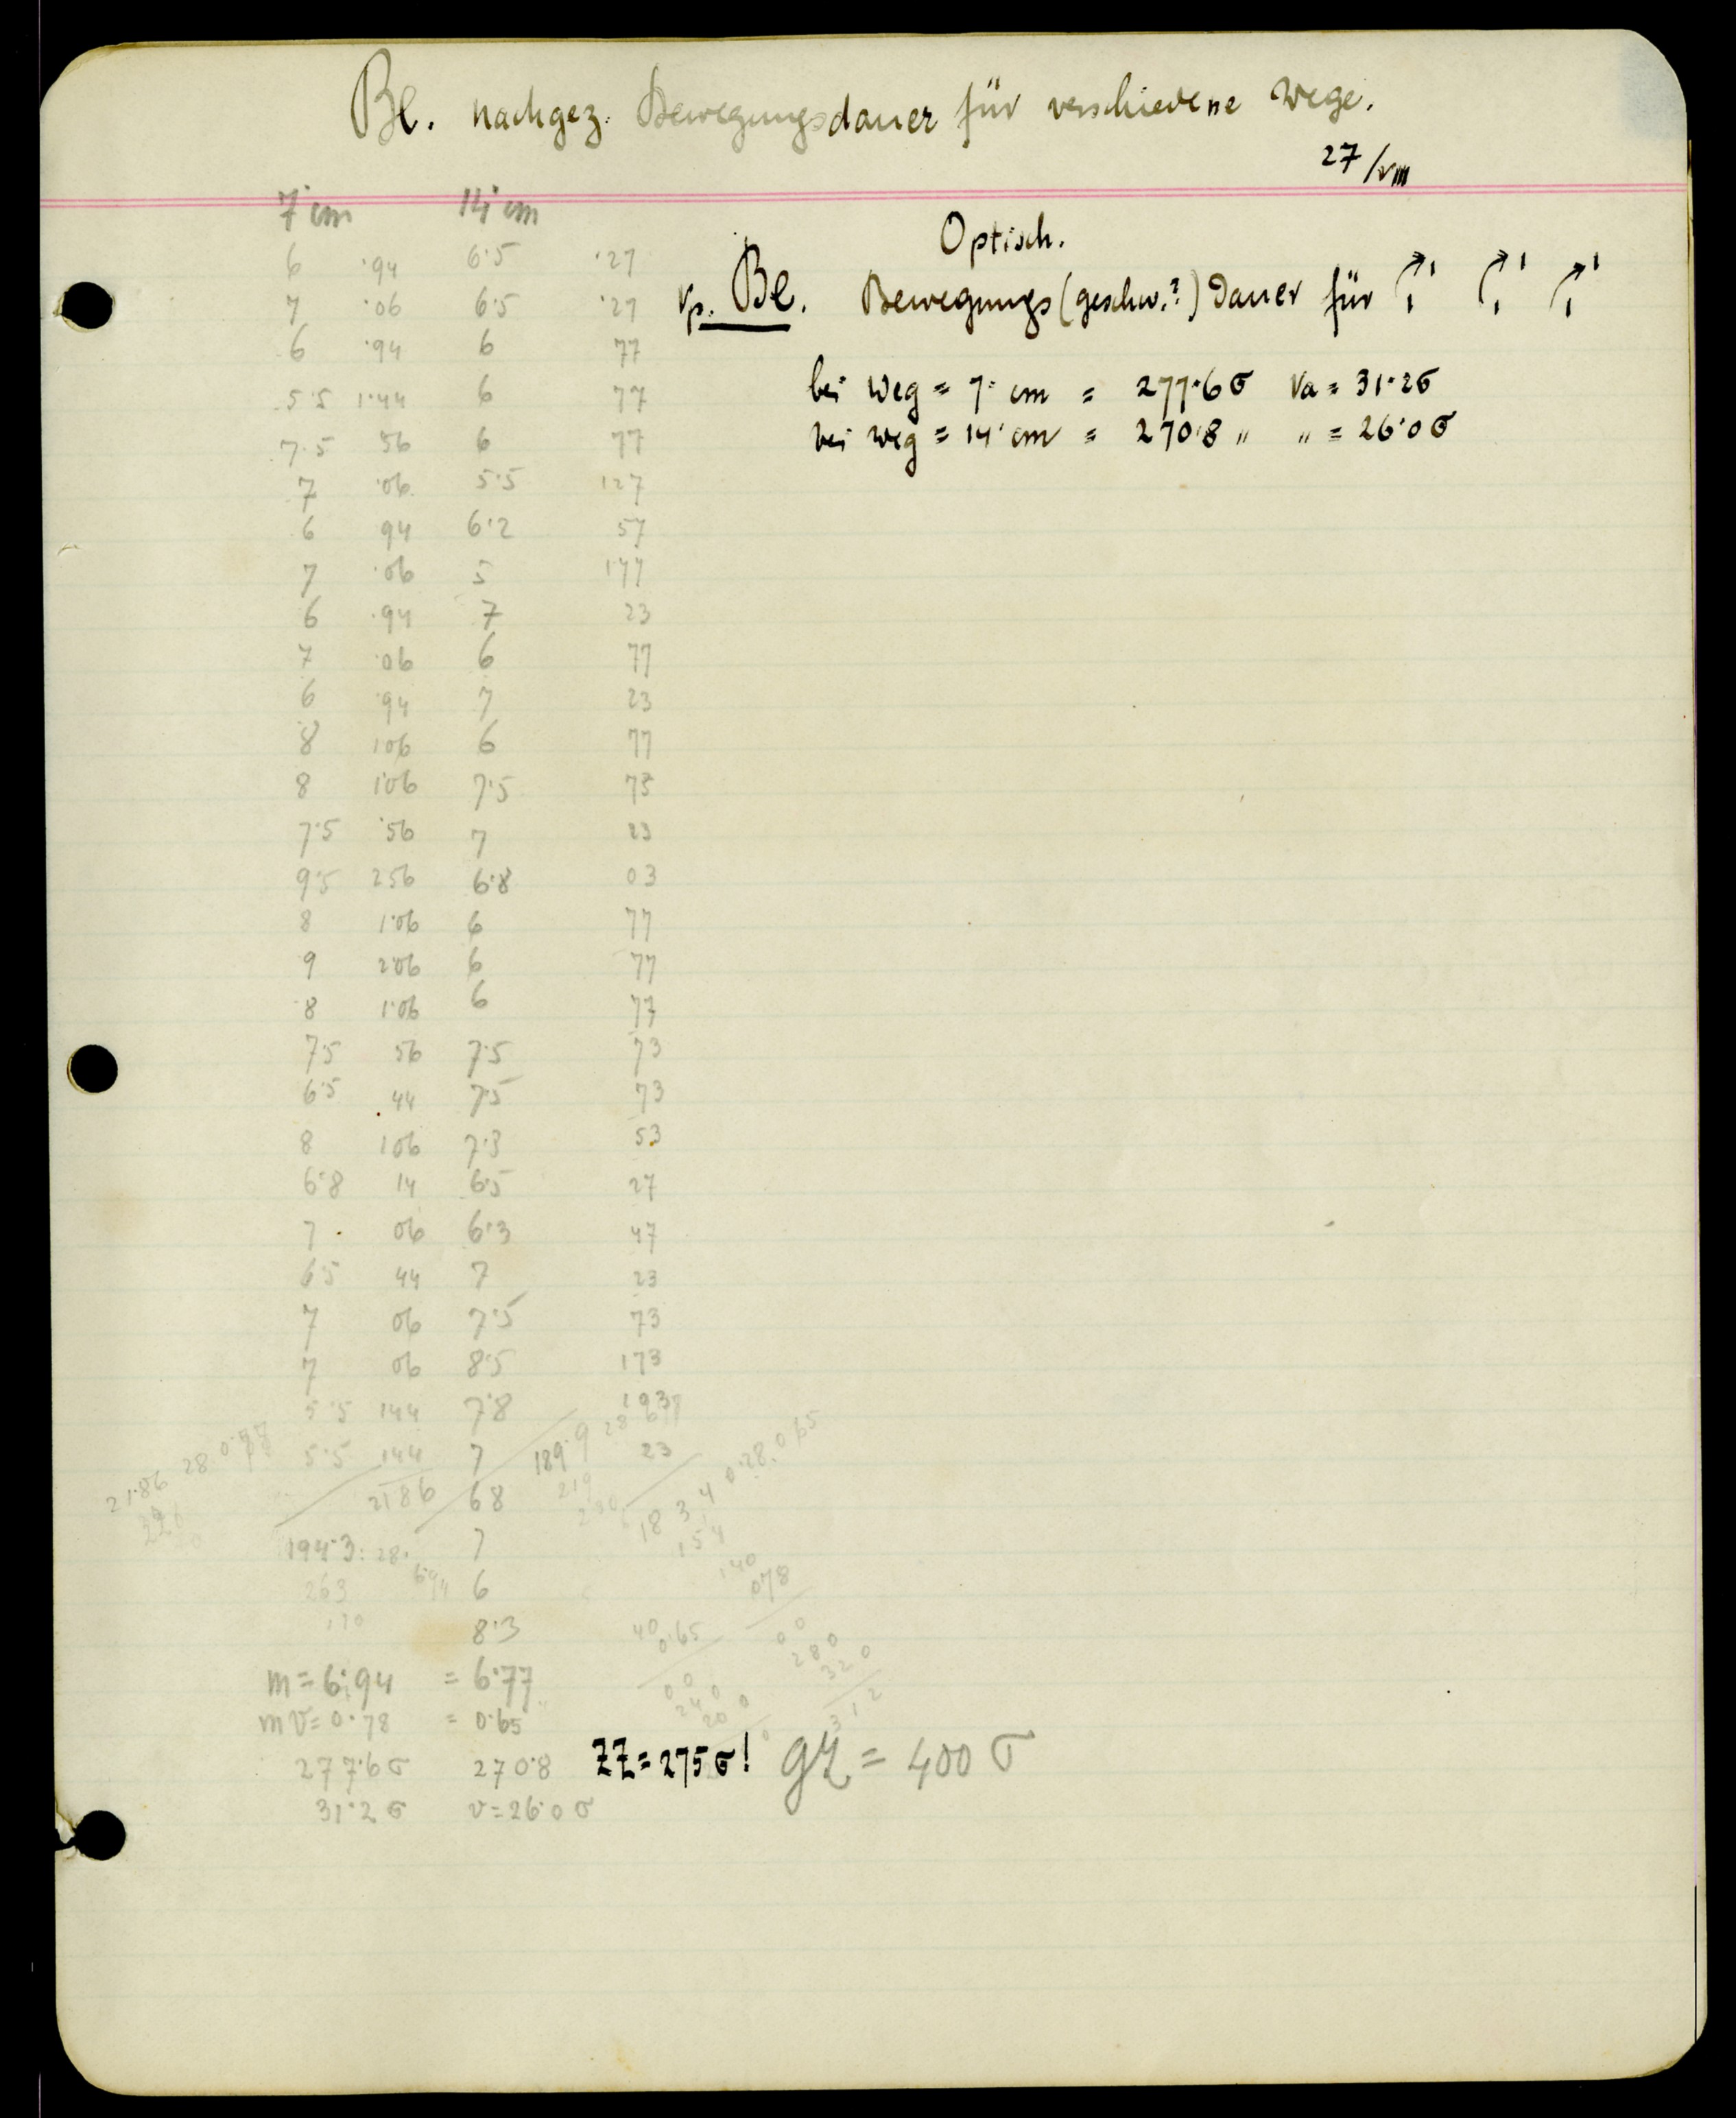 Be. nachgez. Bewegungsdauer für verschiedene Wege.
27/VIII
7 cm 14 cm
Optisch.
Vp. Be. Bewegungs (geschw.?) Dauer für
bei Weg = 7· cm = 277·6 σ Va = 31·2σ
bei Weg = 14· cm = 270·8 " " = 26·0 σ
6 ·94 6·5 ·27
7 ·06 6·5 ·27
6 ·94 6 77
5·5 1·44 6 77
7·5 56 6 77
7 ·06 5·5 127
6 94 6·2 57
7 ·06 5 177
6 ·94 7 23
7 ·06 6 77
6 ·94 7 23
8 106 6 77
8 1·06 7·5 73
7·5 ·56 7 23
9·5 256 6·8 03
8 1·06 6 77
9 2·06 6 77
8 1·06 6 77
7·5 56 7·5 73
6·5 44 7·5 73
8 106 7·3 53
6·8 14 6·5 27
7 · 06 6·3 47
6·5 44 7 23
7 06 7·5 73
7 06 8·5 173
5·5 144 7·8 193
5·5 144 7 189·9 23
2186 68
21·86 28 0·78
18 3 4 0·28. 0·65
154
140
194·3 : 28· 7
263 6·94 6
170 8·3
078
40
0·65
m = 6·94 = 6·77
m V = 0·78 = 0·65
277·6 σ 270·8 ZZ = 275 σ! gZ = 400 σ
31·2 σ v = 26·0 σ
312